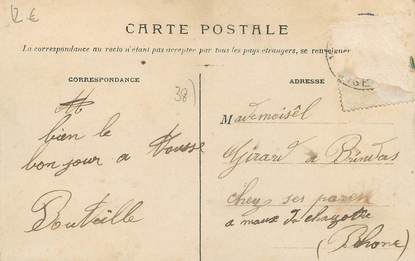 2€
CARTE POSTALE
La correspondance au recto n'étant pas acceptée par tous les pays étrangers, se renseigner
CORRESPONDANCE
ADRESSE
38)
bien le
bon jour a Tousse
Bouteille
Mademoisèl
Girard a Brindas
chey ses paren
a maux du chazotte
(Rhone)